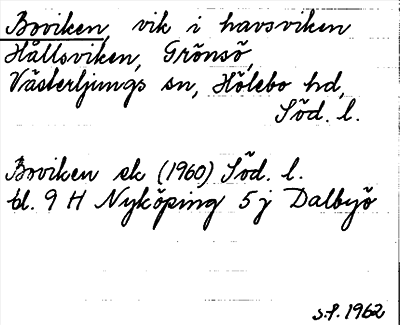 Boviken, vik i havsviken
Hållsviken, Grönsö,
Västerljungs sn, Hölebo hd,
Söd. l.
Boviken ek (1960) Söd. l.
bl. 9 H Nyköping 5 j Dalbyö
S.P. 1962